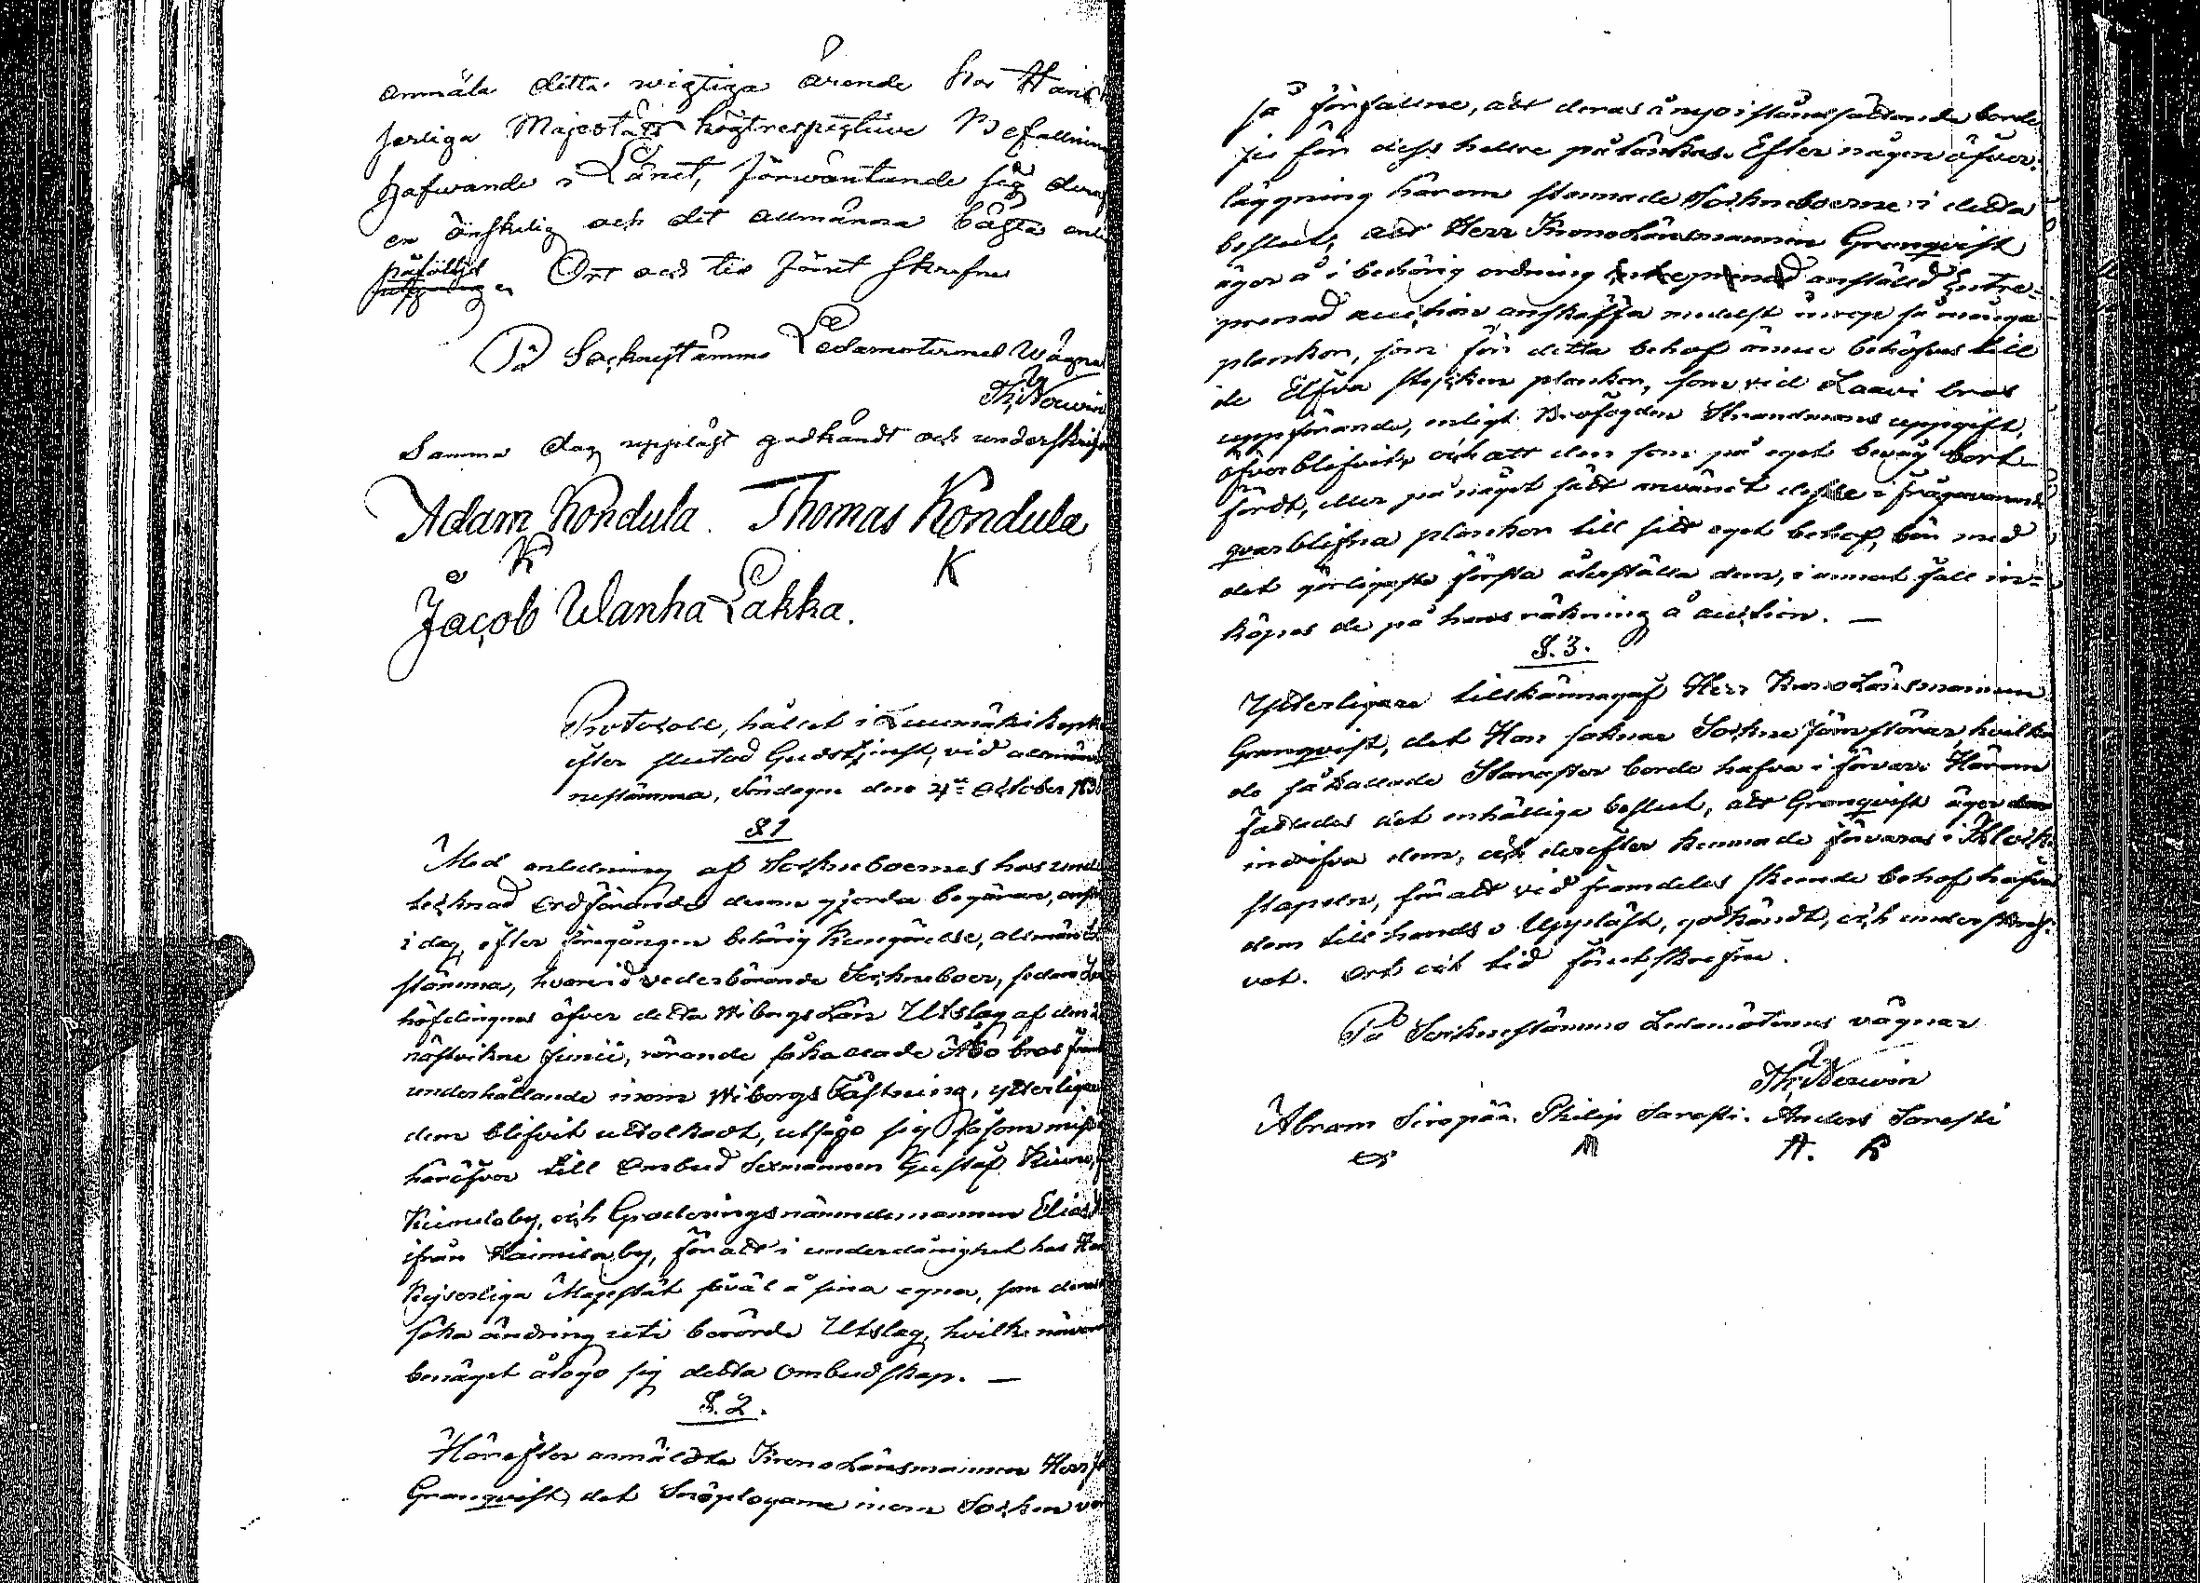 anmäla detta wigtiga ärende hos Hans K
serliga Majestäts högtrespective Befallnin
hafwande i Länet, förwäntande sig deraf
en önskelig och det allmänna bästa
påföljd Ort och tid förut skrefne
På Socknestämmo Ledamoternes Wägnar
Th. Nerwin
Samma dag uppläst godkändt och underskrif
Adam Kondula. Thomas Kondula
K K
Jacob Wanha Lakka.
Protocoll, hållet i Luumäki kapell
efter slutad Gudstjenst, vid allmän
nestämma, Söndagen den 4de October 183
§ 1
Med anledning af Sockneboernes hos unde
tecknad Ordförande denna gjorda begäran,
i dag, efter föregången behörig Kungörelse, allmän
stämma, hvarvid vederbörande Sockneboer, sedan
höfdingens öfver detta Wiborgs Län Utslag af den
nästvikne Junii, rörande så kallade Åbo bros
underhållande inom Wiborgs Fästning, ytterligare
dem blifvit uttolkadt, utsågo sig såsom miss
häröfver till Ombud Sexmannen Gustaf
Kiurula by, och Graderingsnämndemannen Elias
ifrån Haimila by, för att i underdånighet hos Hans
Kejserliga Majestät såväl å sina egna, som deras
söka ändring uti berörde Utslag, hvilke närvar
benäget åtogo sig detta Ombudskap. —
§. 2.
Härefter anmäldte Krono Länsmannen Herr
Granqvist, det Snöplogarne inom Socken
så förfallne, att deras ånyo iståndsättande borde
ju för dess heldre påtänkas. Efter någon öfver-
läggning härom stannade Sockneboerne i detta
beslut, att Herr Krono Länsmannen Granqvist
äger å i behörig ordning anstäld Entre-
prenad auction anskaffa medelst inrop så många
plankor, som för detta behof ännu behöfves till
de Elfva stycken plankor, som vid Laavi bros
uppförande, enligt Brofogden Strandmans uppgift,
öfverblifvit, och att den som på eget bevåg bort-
fördt, eller på något sätt använt desse i frågavarande
qvarblifna plankor till sitt eget behof, bör med
det görligaste första återställa dem, i annat fall in-
köpes de på hans räkning å auction. —
§. 3.
Ytterligare tillkännagaf Herr Krono Länsmannen
Granqvist, det Han saknar Sockne Jernstörar hvilka
de så kallade Starostor borde hafva i förvar. Härom
fattades det enhälliga beslut, att Granqvist äger
indrifva dem, och derefter kommade förvaras i
stapeln, för att vid framdeles skeende behof hafva
dem till hands. Uppläst, godkändt, och underskref-
vet. Ort och tid förut skrefne.
På Socknestämmo Ledamöternes vägnar
Th. Nerwin
Abram Sirepää. Philip Sarasti. Anders Sarasti
A. K